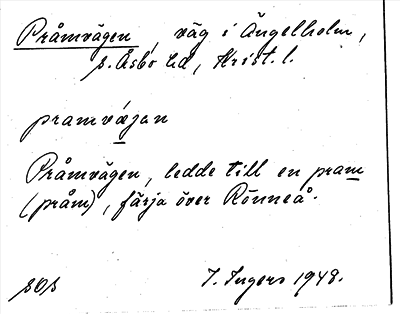 Pråmvägen, väg i Ängelholm,
s. Åsbo hd, Krist. l.
pramvæjan
Pråmvägen, ledde till en pram
(pråm), färja över Rönneå.
sOs I. Ingers 1948.